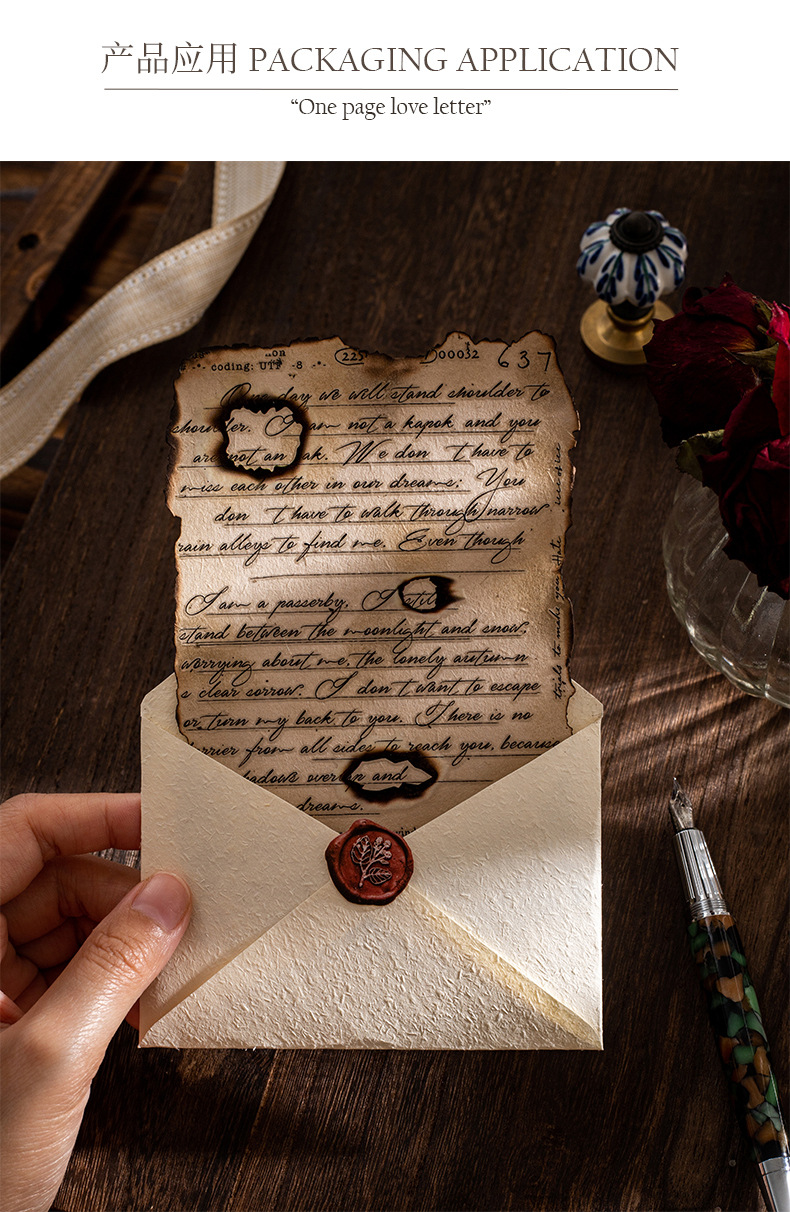 产品应用 PACKAGING APPLICATION
“One page love letter”
coding: UTF -8 225 00032 637
One day we will stand shoulder to
shoulder. I am not a kapok and you
are not an oak. We don t have to
miss each other in our dreams; You
don t have to walk through narrow
rain alleys to find me. Even though
I am a passerby, I still
stand between the moonlight and snow,
worrying about me, the lonely autumn
s clear sorrow. I don t want to escape
or turn my back to you. There is no
barrier from all sides to reach you, because
and
dreams.
to make you